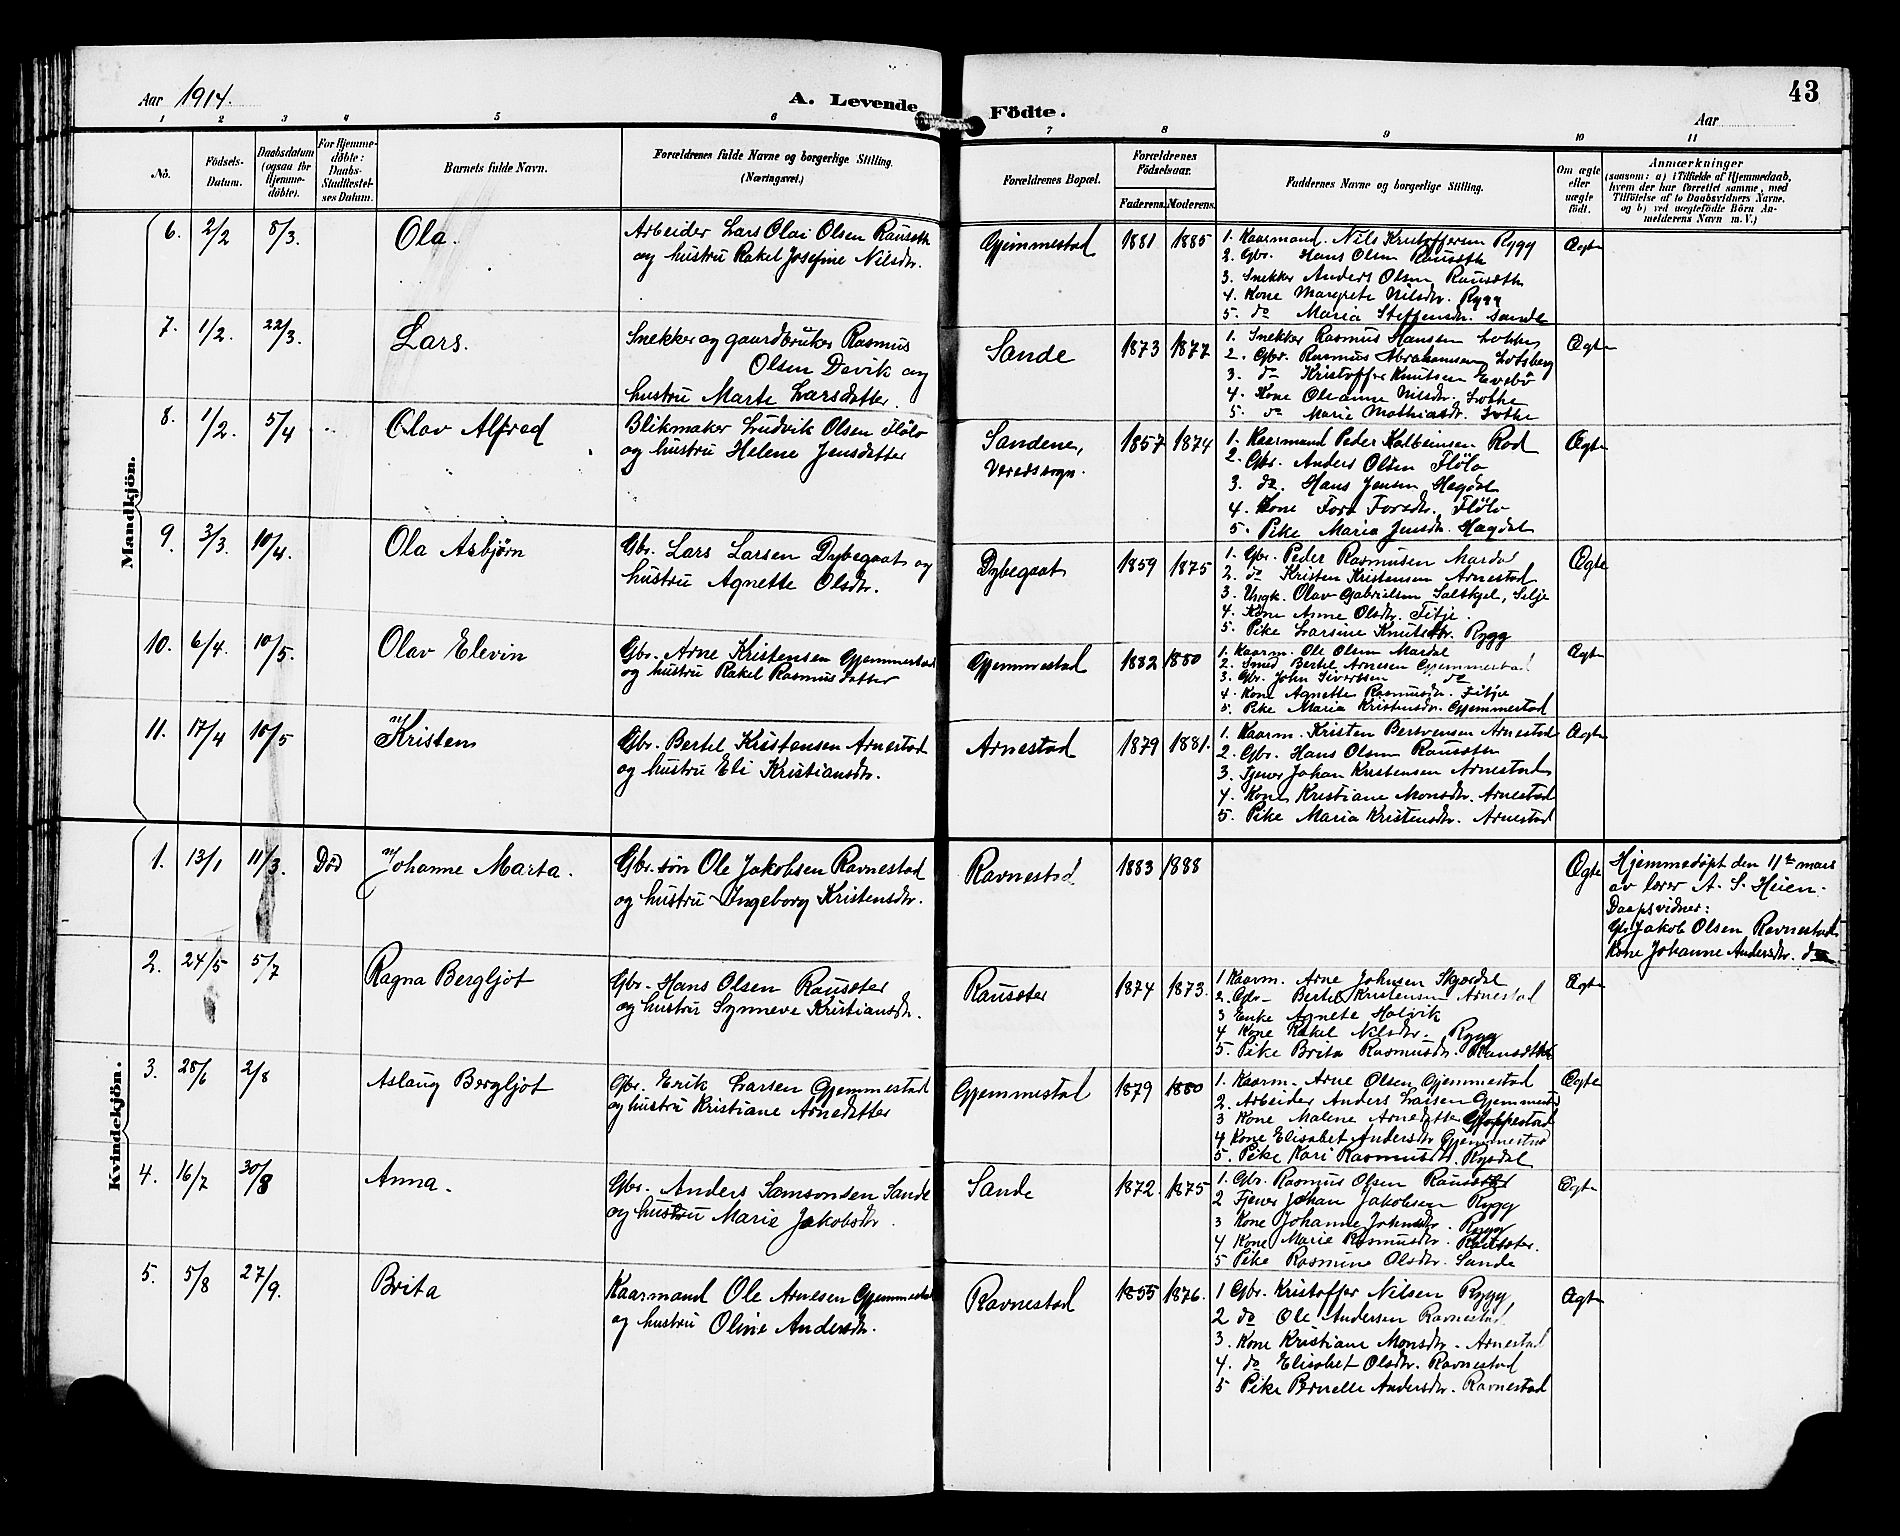 Aar 1914.
A. Levende Födte.
43
Aar
1 2 3 4 5 6 7 8 9 10 11
No.
Födsels-Datum.
Daabsdatum (ogsaa for Hjemme-döbte).
For Hjemme-döbte: Daabs-Stadfæstel-ses Datum.
Barnets fulde Navn.
Forældrenes fulde Navne og borgerlige Stilling. (Næringsvei.)
Forældrenes Bopæl.
Forældrenes Födselsaar.
Faderens. Moderens.
Faddernes Navne og borgerlige Stilling.
Om ægte eller uægte födt.
Anmærkninger
(saasom: a) i Tilfælde af Hjemmedaab,
hvem der har forrettet samme, med
Tilföielse af to Daabsvidners Navne.
og b) ved uægtefödte Börn An-
melderens Navn m. V.)
Mandkjön.
6. 2/2 8/3. Ola.
Arbeider Lars Olai Olsen Rauseth
og hustru Rakel Josefine Nilsdtr.
Gjemmestad 1881 1885
1. Kaarmand. Nils Kristoffersen Rygg
2. Gbr. Hans Olsen Rauseth
3. Snekker Anders Olsen Rauseth
4. Kone Margrete Nilsdtr. Rygg
5. do Maria Steffensdtr. Sande
Ægte
7. 1/2. 22/3. Lars.
Snekker og gaardbruker Rasmus
Olsen Devik og
hustru Marte Larsdatter.
Sande 1873 1877
1. Snekker Rasmus Hanssen Lothe
2. Gbr. Rasmus Abrahamsen Lotsberg
3. do Kristoffer Knutsen Evebö
4. Kone Oleanne Nilsdtr. Lothe
5. do Marie Mathiasdtr. Lothe
Ægte
8. 1/2. 5/4 Olav Alfred
Blikmaker Ludvik Olsen Flölo
og hustru Helene Jensdatter
Sandene,
Vereds sogn.
1857 1874
1. Kaarmand Peder Kolbeinsen Rod
2. Gbr. Anders Olsen Flölo
3. do. Hans Jensen Hegdal
4. Kone Tora Toresdtr. Flölo
5. Pike Maria Jensdtr. Hægdal
Ægte
9. 3/3. 10/4. Ola Asbjørn
Gbr. Lars Larsen Dybegaat og
hustru Agnette Olsdtr.
Dybegaat 1859 1875
1. Gbr. Peder Rasmusen Mardal
2. do Kristen Kristensen Arnestad
3. Ungk. Olav Gabrielsen Saltskjel, Selje
4. Kone Anne Olsdtr. Fitje.
5. Pike Larsine Knutsdtr. Rygg
Ægte
10. 6/4. 10/5. Olav Elevin
Gbr. Arne Kristensen Gjemmestad
og hustru Rakel Rasmusdatter
Gjemmestad 1882 1880
1. Kaarm. Ole Olsen Mardal
2. Smed Bertel Arnesen Gjemmestad
3. Gbr. John Sivertsen do
4. Kone Agnette Rasmusdtr. Fitje
5. Pike Maria Kristensdtr. Gjemmestad
Ægte
11. 17/4 10/5 Kristen
Gbr. Bertel Kristensen Arnestad
og hustru Eli Kristiansdtr.
Arnestad 1879 1881.
1. Kaarm. Kristen Bertensen Arnestad
2. Gbr. Hans Olsen Rausster
3. Tjener Johan Kristensen Arnestad
4. Kone Kristiane Monsdtr. Arnestad
5. Pike Maria Kristensdtr. Arnestad
Ægte
Kvindekjön.
1. 13/1 11/3. Död Johanne Marta.
Gbr.-sön Ole Jakobsen Ravnestad
og hustru Ingeborg Kristensdtr.
Ravnestad 1883 1888
Ægte
Hjemmedöpt den 11te mars
av lærer A. S. Heien.
Daapsvidner:
Gbr Jakob Olsen Ravnestad
Kone Johanne Andersdtr. do
2. 24/5 5/7 Ragna Bergljot
Gbr. Hans Olsen Rausster
og hustru Synneve Kristiansdtr.
Rausster 1874 1873.
1 Kaarm. Arne Johnsen Skjerdal
2. Gbr- Bertel Kristensen Arnestad
3 Enke Agnete Holvik
4 Kone Rakel Nilsdtr. Rygg
5. Pike Brita Rasmusdtr. Rauseths
Ægte
3. 28/6 2/8 Aslaug Bergljot
Gbr. Erik Larsen Gjemmestad
og hustru Kristiane Arnedatter
Gjemmestad 1879 1880
1. Kaarm. Arne Olsen Gjemmestad
2. Arbeider Anders Larsen Gjemmestad
3 Kone Malene Arnedatter Gloppestad
4 Kone Elisabet Andersdtr Gjemmestad
5. Pike Kari Rasmusdtr. Rygdal
Ægte
4. 16/7 30/8 Anna.
Gbr. Anders Samsonsen Sande
og hustru Marie Jakobsdtr.
Sande 1872. 1875
1. Gbr. Rasmus Olsen Rausster
2 Tjener Johan Jakobsen Rygg
3 Kone Johanne Johnsdtr. Rygg
4 Kone Marie Rasmusdtr. Rausster.
5 Pike Rasmine Olsdtr. Sande
Ægte
5. 5/8 27/9. Brita
Kaarmand Ole Arnesen Gjemmestad
og hustru Oline Andersdtr.
Ravnestad 1855 1876.
1 Gbr. Kristoffer Nilsen Rygg
2 do Ole Andersen Ravnestad
3. Kone Kristiane Monsdtr. Arnestad
4. do Elisabet Olsdtr. Ravnestad
5 Pike Pernelle Andersdtr. Ravnestad
Ægte